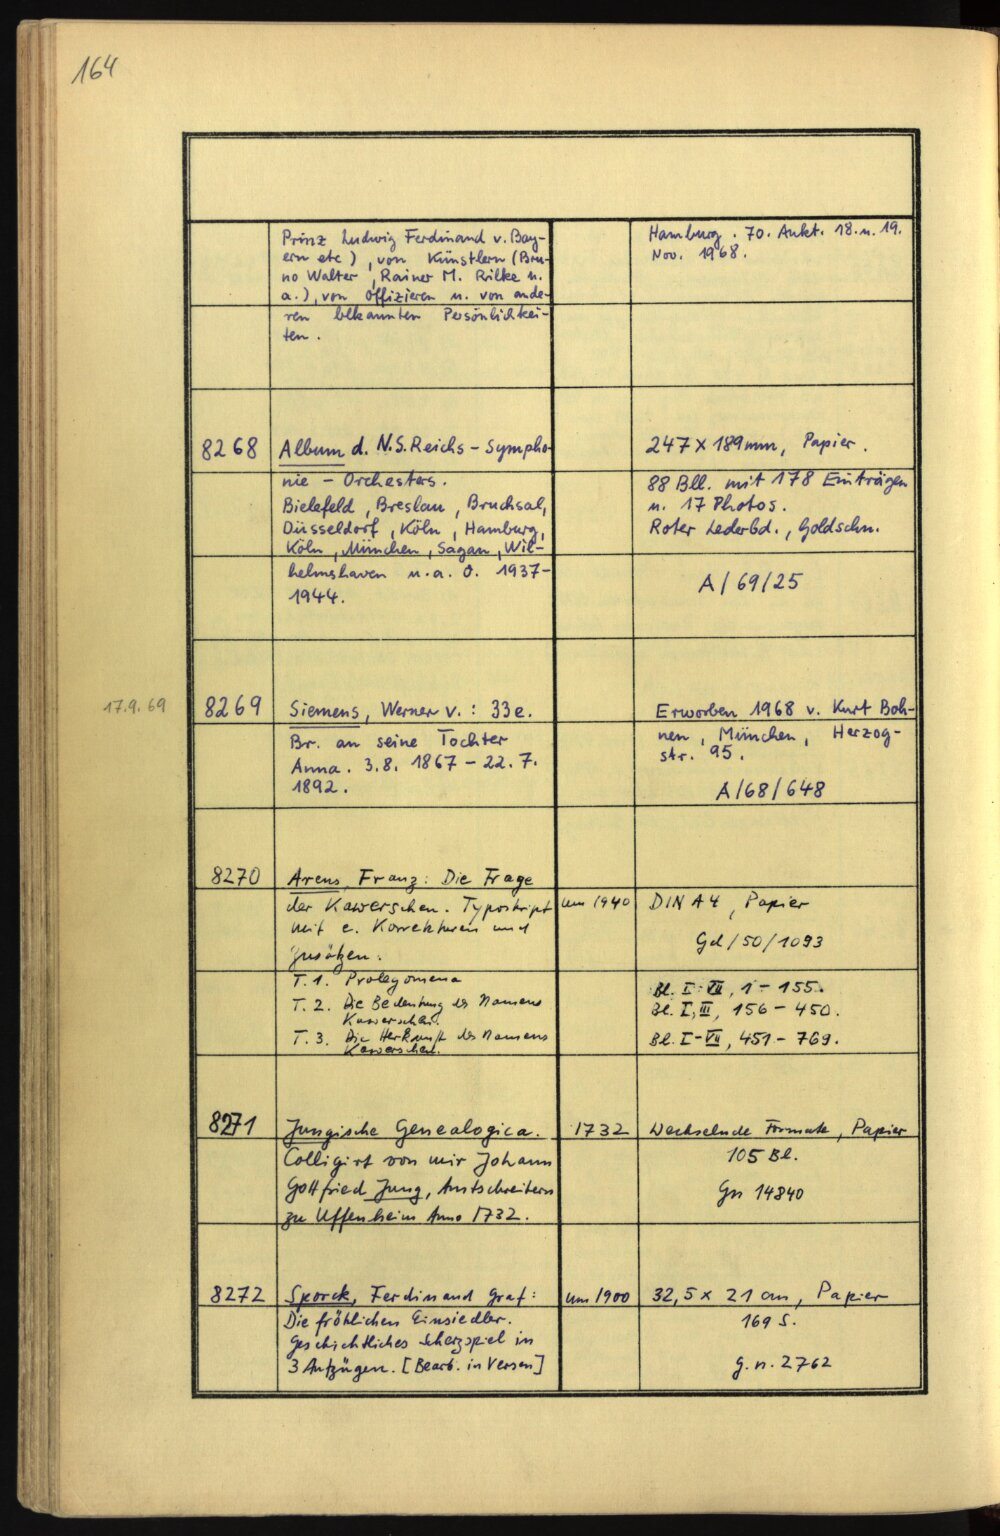 164
Prinz Ludwig Ferdinand v. Bay-
ern etc.), von Künstlern (Bru-
no Walter, Rainer M. Rilke u.
a.), von Offizieren u. von ande-
ren bekannten Persönlichkei-
ten.
Hamburg. 70. Aukt. 18. u. 19.
Nov. 1968.
8268
Album d. N.S. Reichs-Sympho-
nie-Orchesters.
Bielefeld, Breslau, Bruchsal,
Düsseldorf, Köln, Hamburg,
Köln, München, Sagan, Wil-
helmshaven u.a. O. 1937-
1944.
247 x 189 mm, Papier.
88 Bll. mit 178 Einträgen
u. 17 Photos.
Roter Lederbd., Goldschn.
A/69/25
17.9.69
8269
Siemens, Werner v.: 33 e.
Br. an seine Tochter
Anna. 3.8.1867 - 22.7.
1892.
Erworben 1968 v. Kurt Boh-
nen, München, Herzog-
str. 95.
A/68/648
8270
Arens, Franz: Die Frage
der Kawerschen. Typoskript
mit e. Korrekturen und
Zusätzen.
T. 1. Prolegomena
T. 2. Die Bedeutung des Namens
Kawerschen.
T. 3. Die Herkunft des Namens
Kawerschen.
um 1940
DIN A4, Papier
Gd/50/1093
Bl. I-VII, 1-155.
Bl. I, III, 156-450.
Bl. I-VII, 451-769.
8271
Jungische Genealogica.
Colligirt von mir Johann
Gottfried Jung, Amtschreibern
zu Uffenheim Anno 1732.
1732
Wechselnde Formate, Papier
105 Bl.
Gn 14840
8272
Sporck, Ferdinand Graf:
Die fröhlichen Einsiedler.
Geschichtliches Scherzspiel in
3 Aufzügen. [Bearb. in Versen]
um 1900
32,5 x 21 cm, Papier
169 S.
G.n. 2762